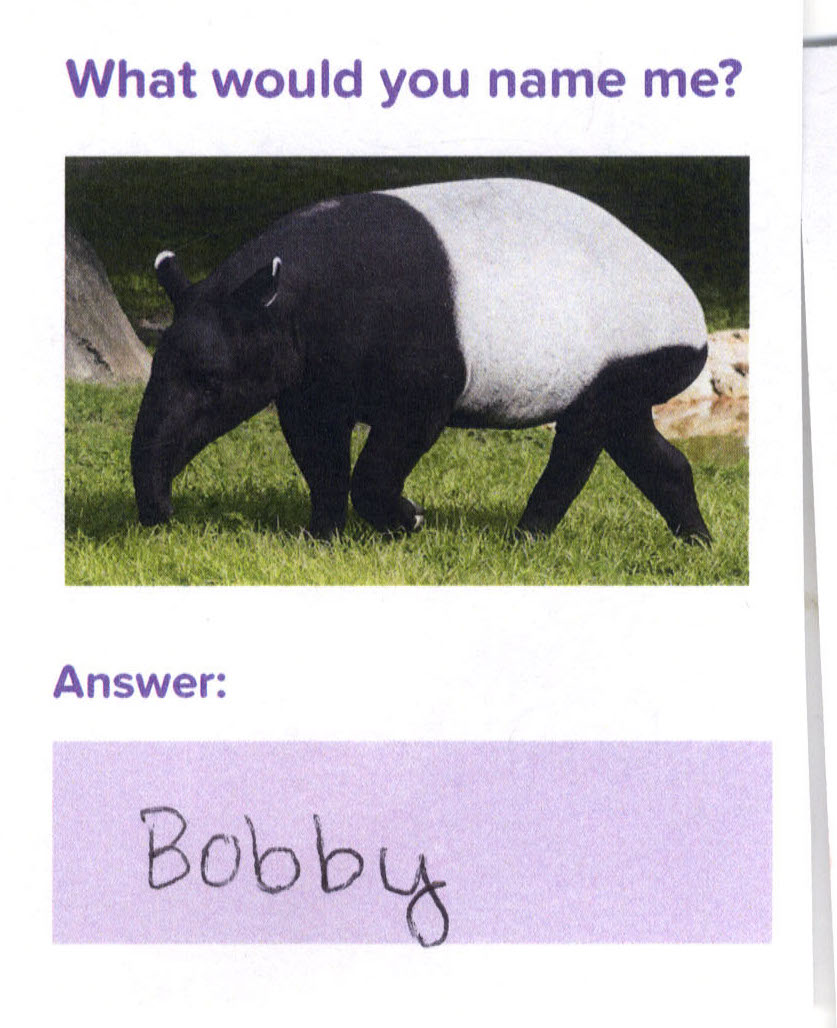 What would you name me?
Answer:
Bobby